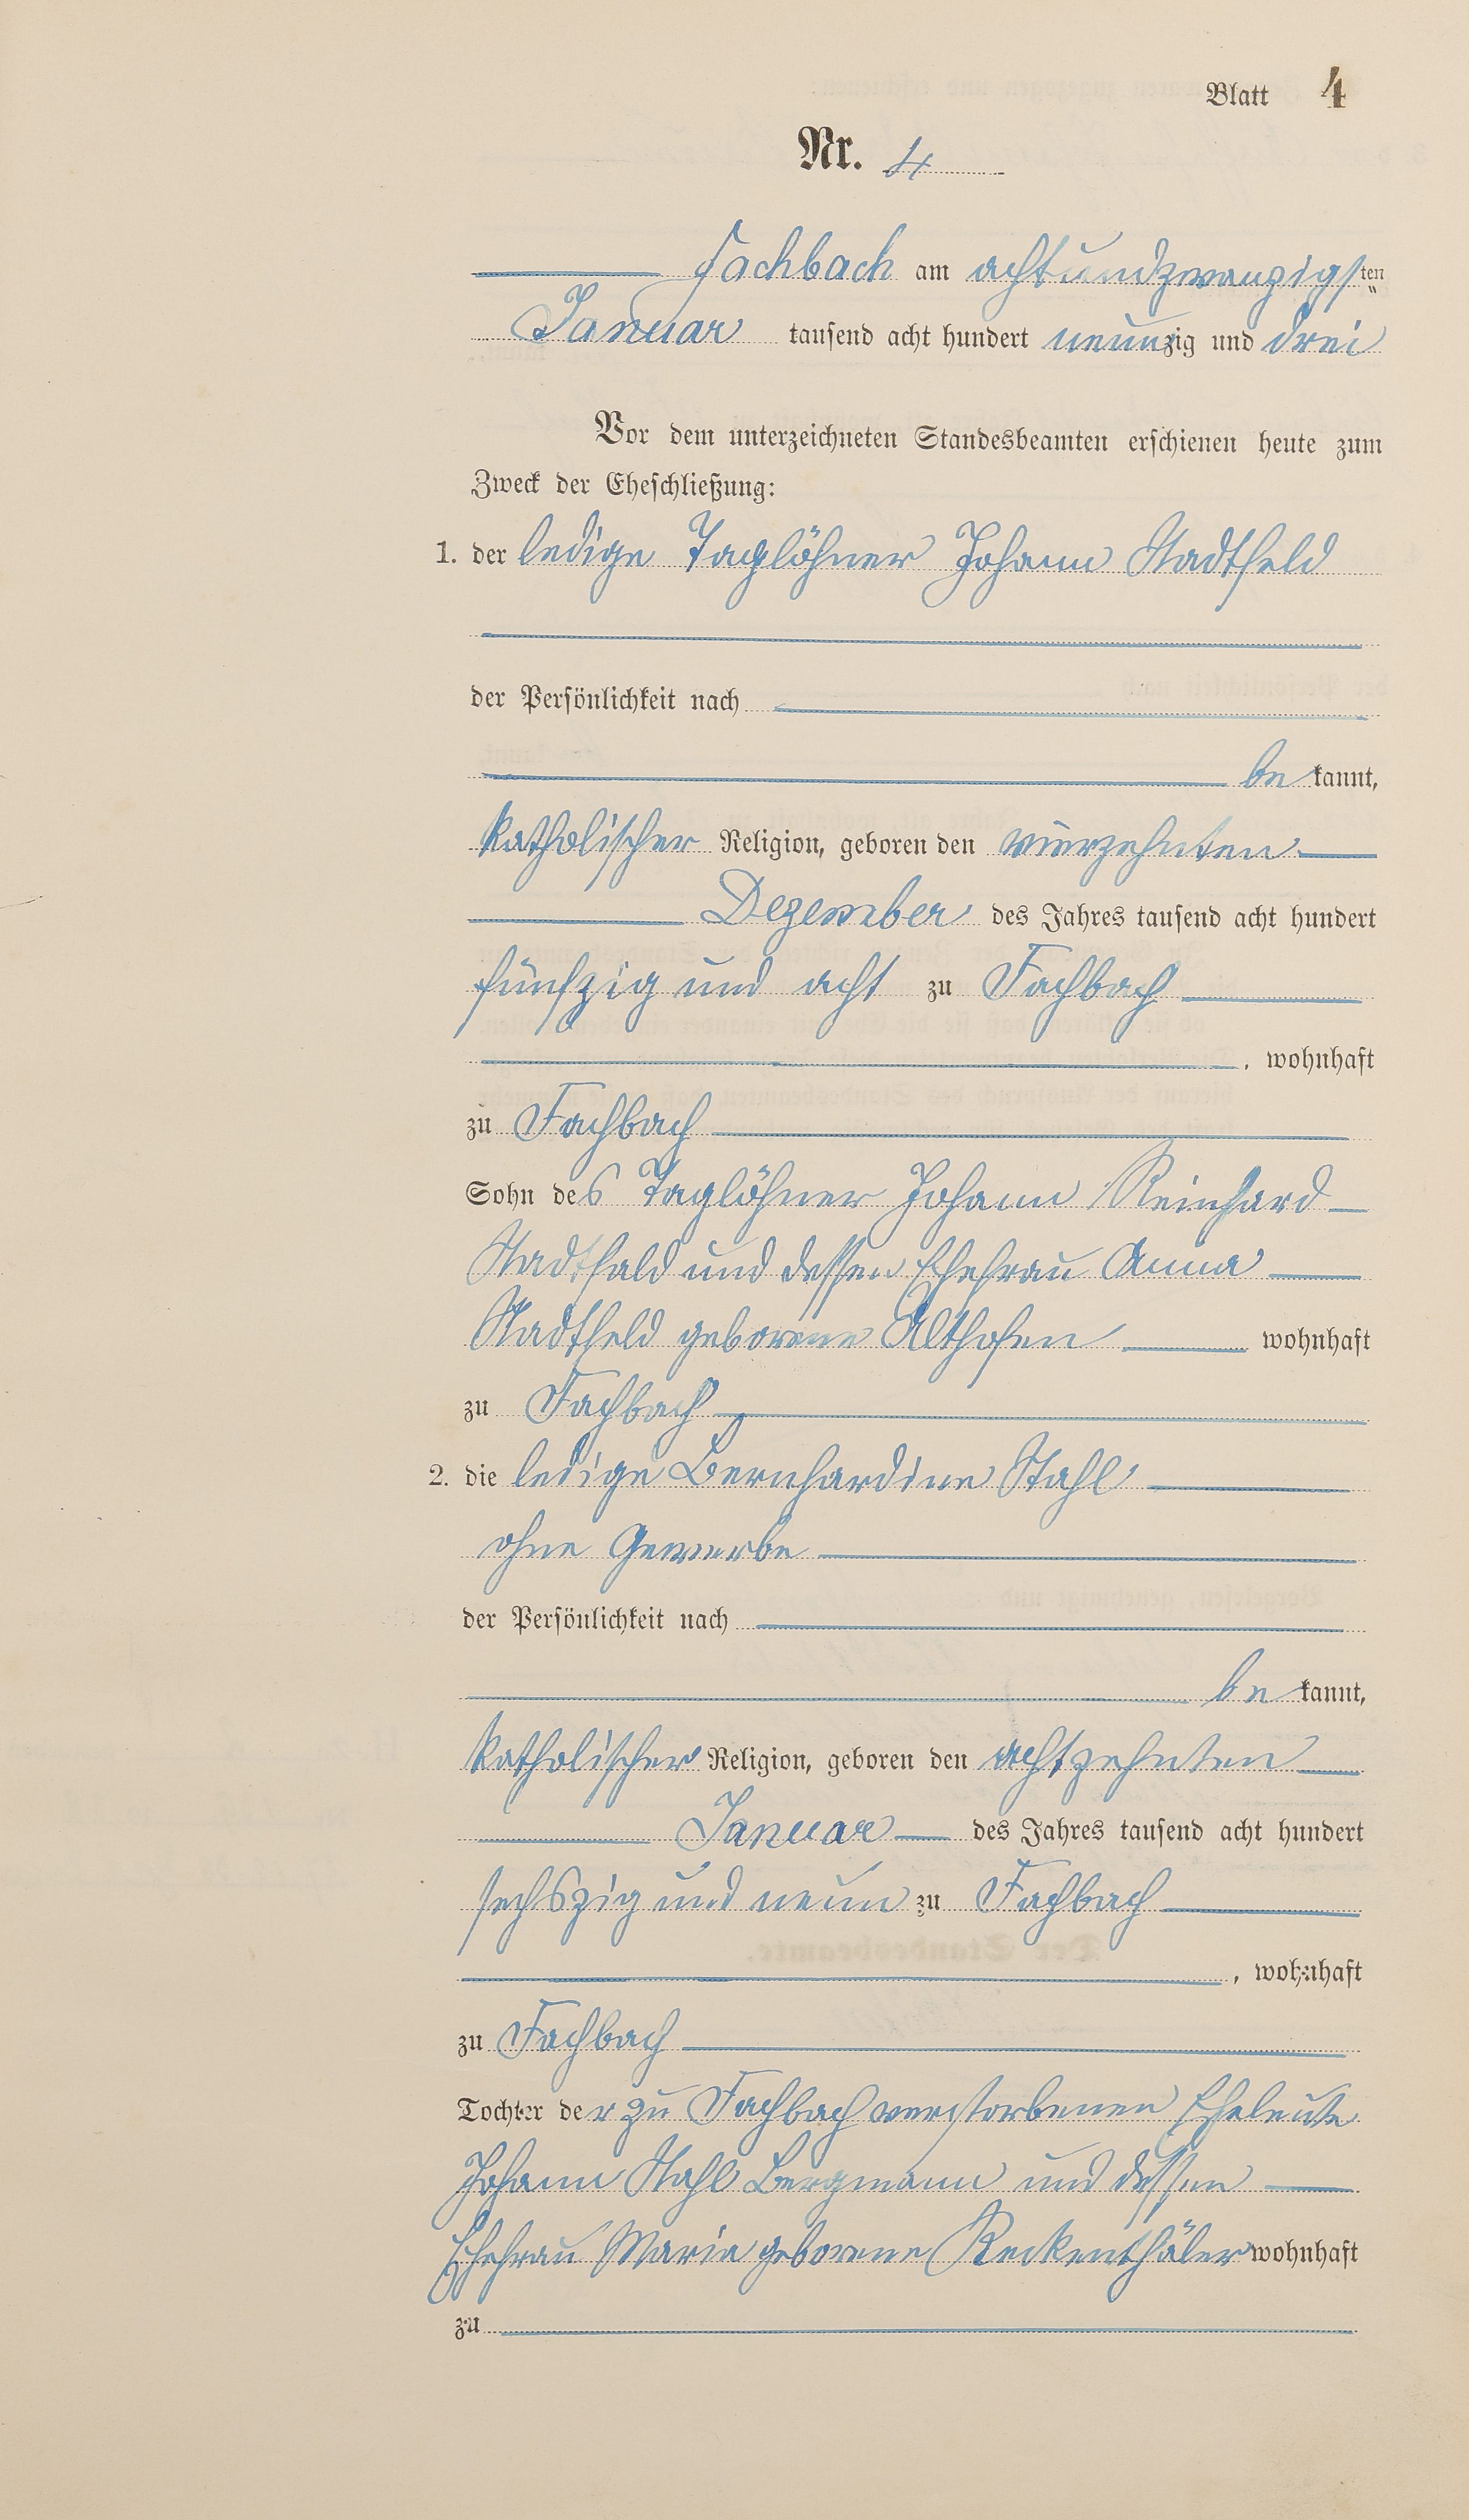 Blatt 4
Nr. 4
Fachbach am achtundzwanzigsten
Januar tausend acht hundert neunzig und drei
Vor dem unterzeichneten Standesbeamten erschienen heute zum
Zweck der Eheschließung:
1. der ledige Taglöhner Johann Stadtfeld
der Persönlichkeit nach
bekannt,
katholischer Religion, geboren den vierzehnten
Dezember des Jahres tausend acht hundert
fünfzig und acht zu Fachbach
, wohnhaft
zu Fachbach
Sohn des Taglöhner Johann Reinhard
Stadtfeld und dessen Ehefrau Anna
Stadtfeld geborene Althofen wohnhaft
zu Fachbach
2. die ledige Bernhardine Stahl
ohne Gewerbe
der Persönlichkeit nach
bekannt,
katholischer Religion, geboren den achtzehnten
Januar des Jahres tausend acht hundert
sechszig und neun zu Fachbach
, wohnhaft
zu Fachbach
Tochter der zu Fachbach verstorbenen Eheleute
Johann Stahl Bergmann und dessen
Ehefrau Maria geborene Reckenthäler wohnhaft
zu